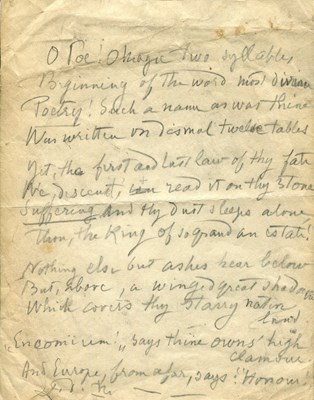 O Poe! O magic two syllables
Beginning of the word most divine
Poetry! Such a name as was thine
Was written on dismal twelve tables
Yet, the first and last law of thy fate
We, descents, can read it on thy stone
Suffering and thy dust sleeps alone,
Thou, the King of so grand an estate!
Nothing else but ashes hear below
But, above, a winged great shadow
Which covers thy starry nation
"Encomium!" says thine owns' high
clambre
And Europe, from afar, says: "Honour!"